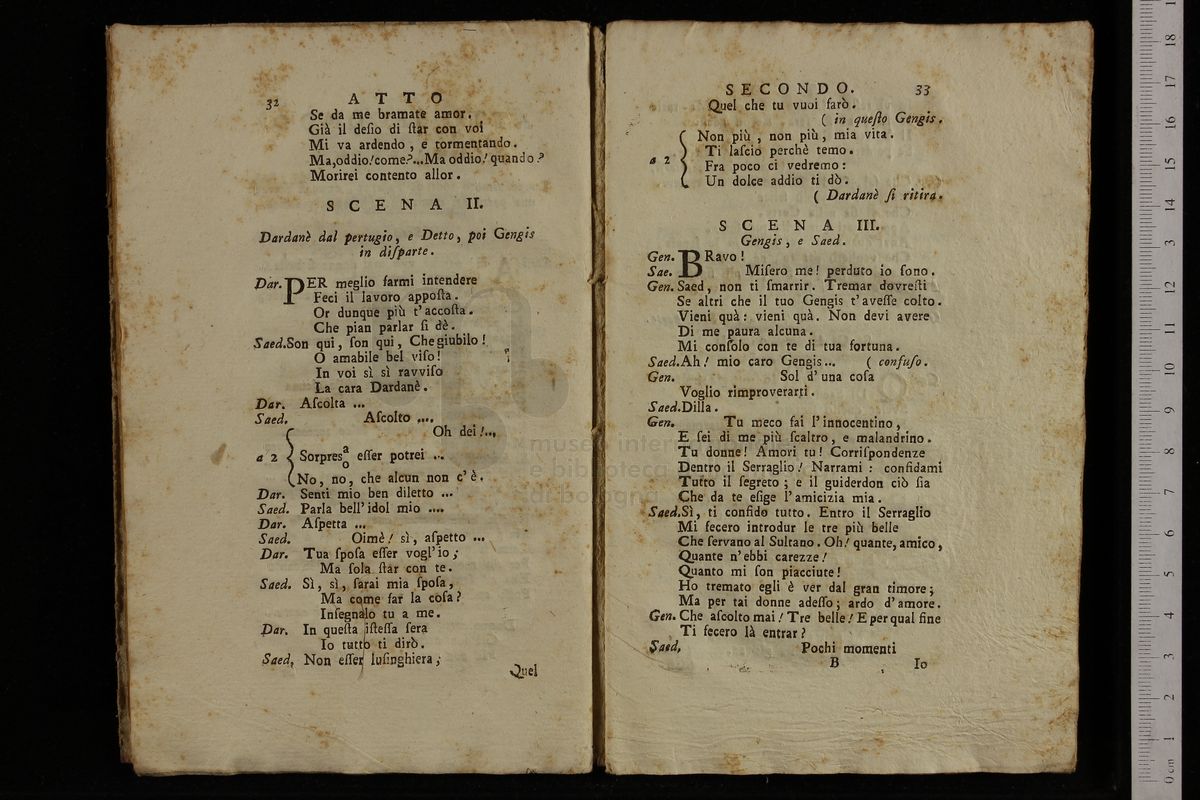 32 ATTO
Se da me bramate amor.
Già il deſio di ſtar con voi
Mi va ardendo, e tormentando.
Ma,oddio!come?...Ma oddio! quando?
Morirei contento allor.
SCENA II.
Dardanè dal pertugio, e Detto, poi Gengis
in diſparte.
Dar. PER meglio farmi intendere
Feci il lavoro appoſta.
Or dunque più t'accoſta.
Che pian parlar ſi dè.
Saed. Son qui, ſon qui, Che giubilo!
O amabile bel viſo!
In voi sì sì ravviſo
La cara Dardanè.
Dar. Aſcolta ...
Saed. Aſcolto ....
Oh dei!...
a 2 { Sorpres a/o eſſer potrei ...
No, no, che alcun non c'è.
Dar. Senti mio ben diletto ...
Saed. Parla bell'idol mio ....
Dar. Aſpetta ...
Saed. Oimè! sì, aſpetto ...
Dar. Tua ſpoſa eſſer vogl'io;
Ma ſola ſtar con te.
Saed. Sì, sì, ſarai mia ſpoſa,
Ma come far la coſa?
Inſegnalo tu a me.
Dar. In queſta iſteſſa ſera
Io tutto ti dirò.
Saed. Non eſſer luſinghiera;
Quel
SECONDO. 33
Quel che tu vuoi farò.
( in queſto Gengis.
a 2 { Non più, non più, mia vita.
Ti laſcio perchè temo.
Fra poco ci vedremo:
Un dolce addio ti dò.
( Dardanè ſi ritira.
SCENA III.
Gengis, e Saed.
Gen. BRavo!
Sae. Miſero me! perduto io ſono.
Gen. Saed, non ti ſmarrir. Tremar dovreſti
Se altri che il tuo Gengis t'aveſſe colto.
Vieni quà: vieni quà. Non devi avere
Di me paura alcuna.
Mi conſolo con te di tua fortuna.
Saed. Ah! mio caro Gengis... ( confuſo.
Gen. Sol d'una coſa
Voglio rimproverarti.
Saed. Dilla.
Gen. Tu meco fai l'innocentino,
E ſei di me più ſcaltro, e malandrino.
Tu donne! Amori tu! Corriſpondenze
Dentro il Serraglio! Narrami: confidami
Tutto il ſegreto; e il guiderdon ciò ſia
Che da te eſige l'amicizia mia.
Saed. Sì, ti confido tutto. Entro il Serraglio
Mi fecero introdur le tre più belle
Che ſervano al Sultano. Oh! quante, amico,
Quante n'ebbi carezze!
Quanto mi ſon piacciute!
Ho tremato egli è ver dal gran timore;
Ma per tai donne adeſſo; ardo d'amore.
Gen. Che aſcolto mai! Tre belle! E per qual fine
Ti fecero là entrar?
Saed. Pochi momenti
B Io
museo inter
e biblioteca
di bologna
0 cm 1 2 3 4 5 6 7 8 9 10 11 12 13 14 15 16 17 18